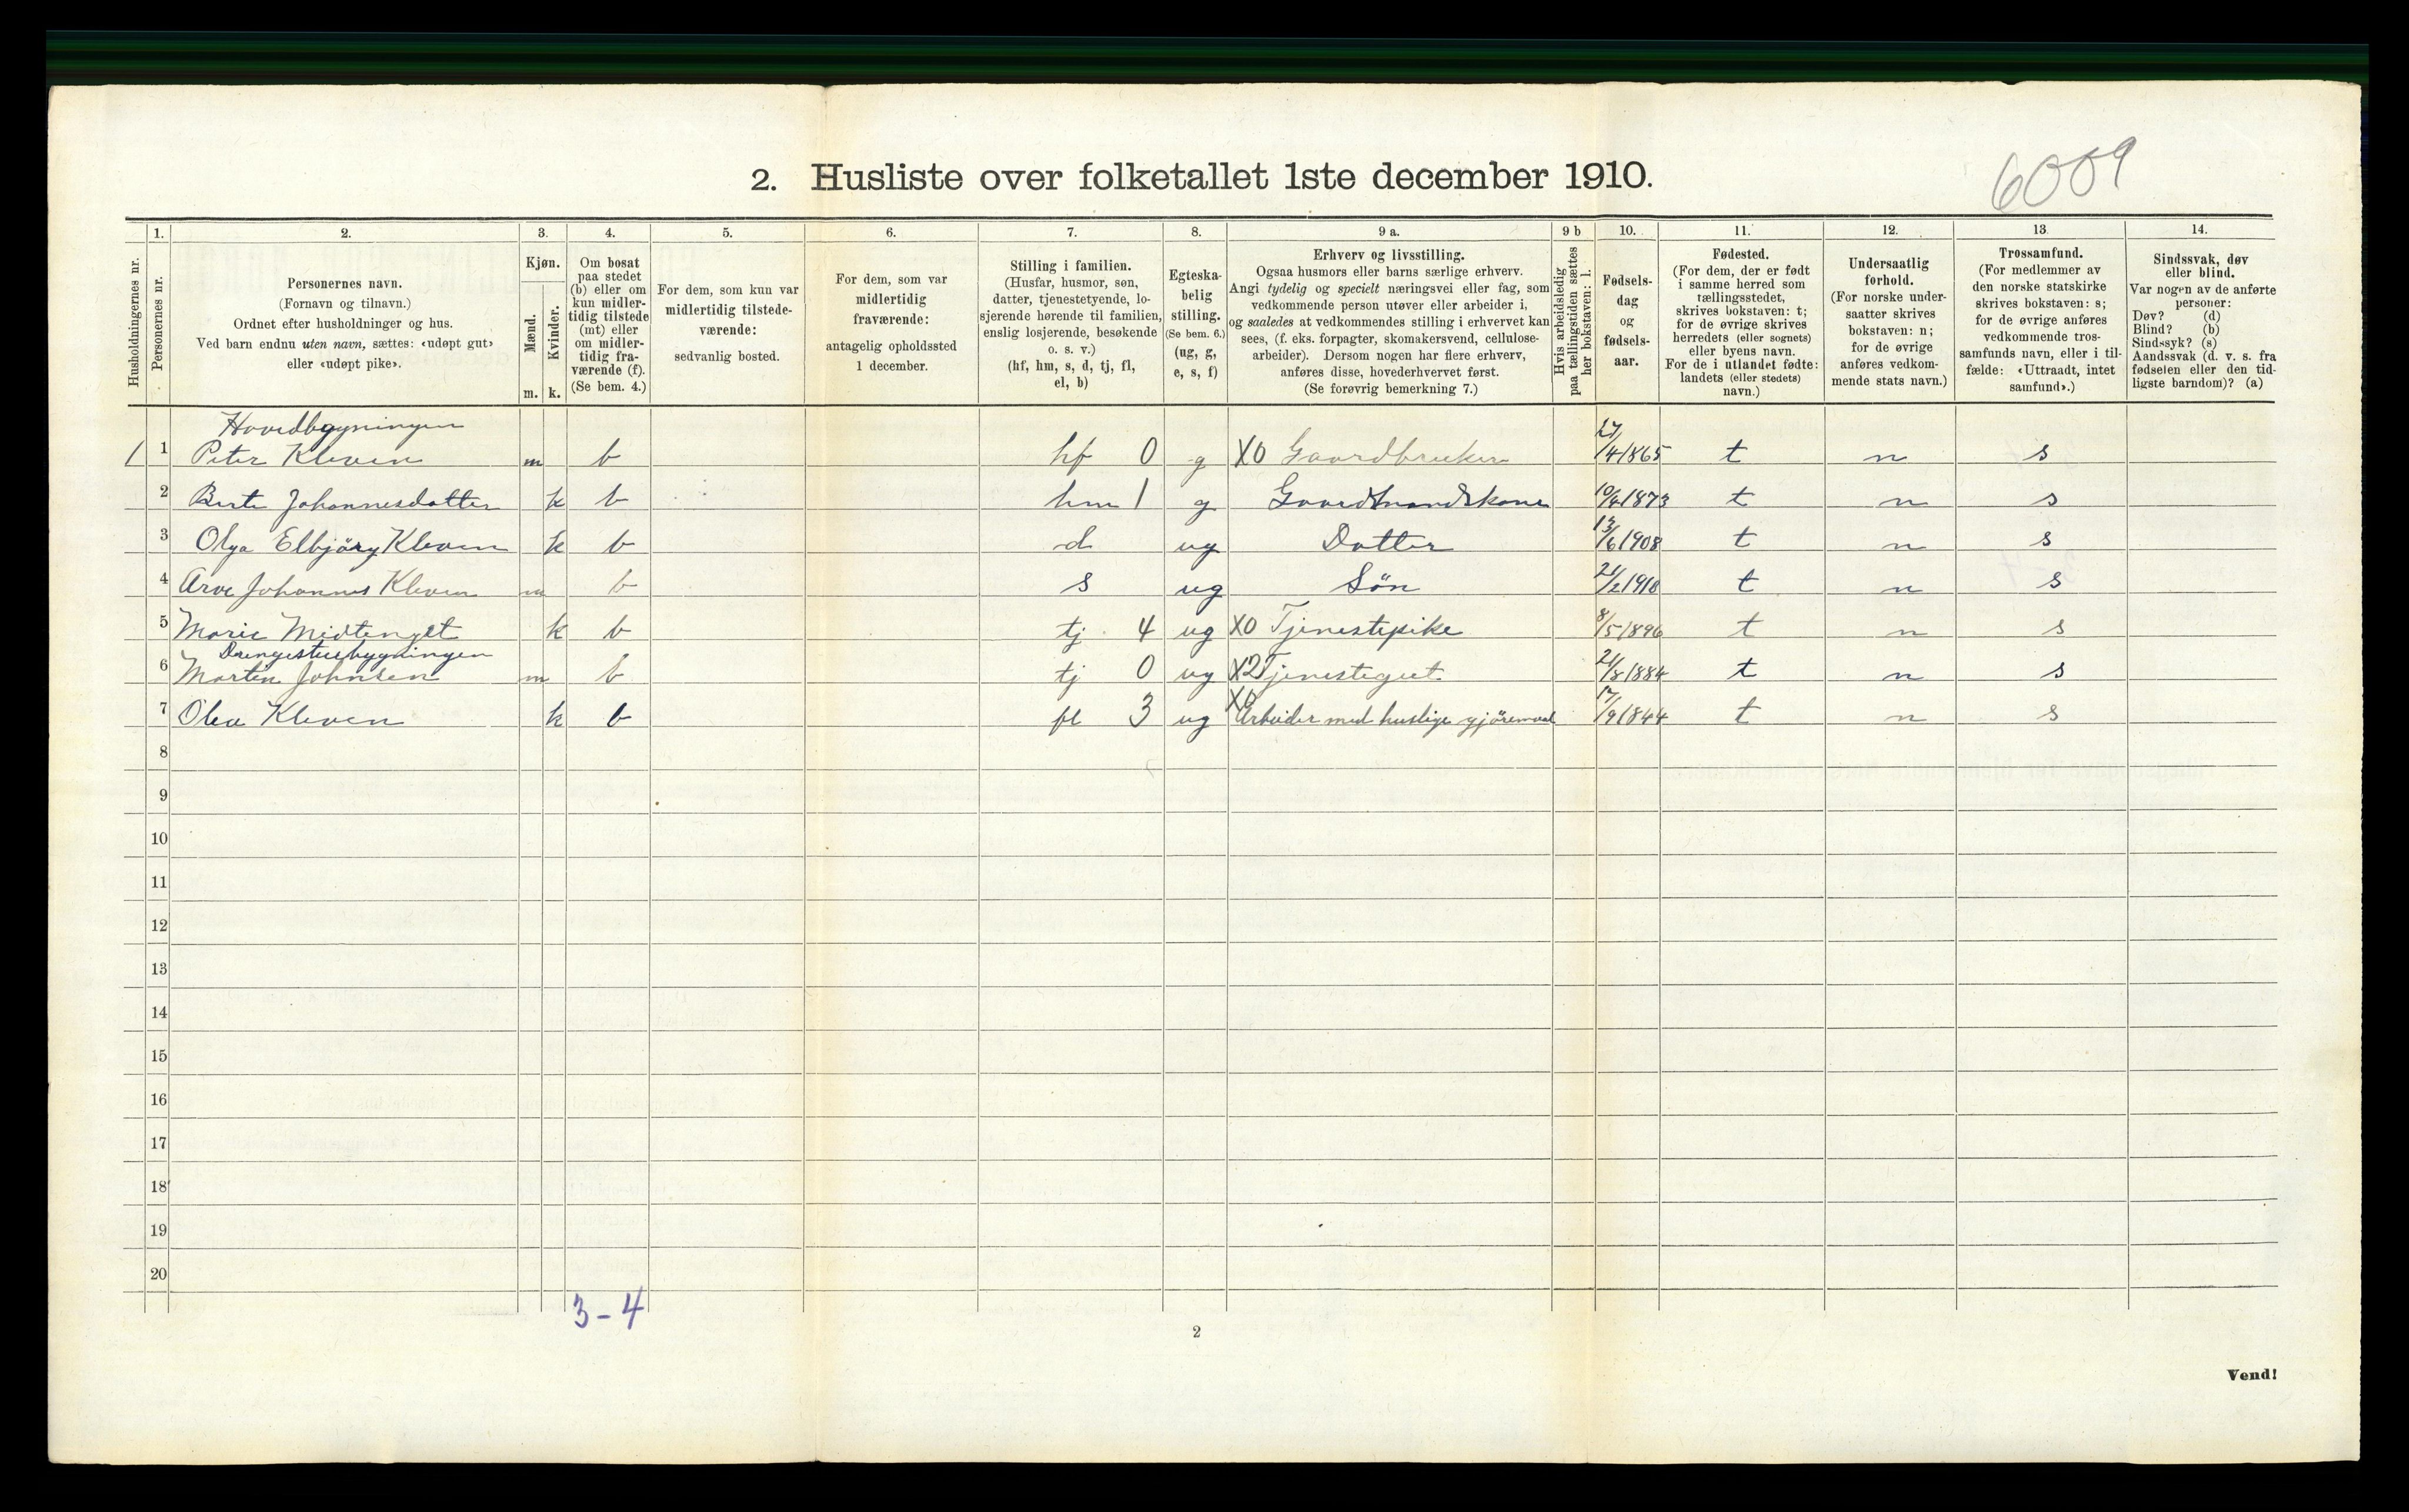 6009
2. Husliste over folketallet 1ste december 1910.
Husholdningernes nr.
1. Personernes nr.
2. Personernes navn.
(Fornavn og tilnavn.)
Ordnet efter husholdninger og hus.
Ved barn endnu uten navn, sættes: «udøpt gut»
eller «udøpt pike».
3. Kjøn.
Mænd. m.
Kvinder. k.
4. Om bosat
paa stedet
(b) eller om
kun midler-
tidig tilstede
(mt) eller
om midler-
tidig fra-
værende (f).
(Se bem. 4.)
5. For dem, som kun var
midlertidig tilstede-
værende:
sedvanlig bosted.
6. For dem, som var
midlertidig
fraværende:
antagelig opholdssted
1 december.
7. Stilling i familien.
(Husfar, husmor, søn,
datter, tjenestetyende, lo-
sjerende hørende til familien,
enslig losjerende, besøkende
o. s. v.)
(hf, hm, s, d, tj, fl,
el, b)
8. Egteska-
belig
stilling.
(Se bem. 6.)
(ug, g,
e, s, f)
9 a. Erhverv og livsstilling.
Ogsaa husmors eller barns særlige erhverv.
Angi tydelig og specielt næringsvei eller fag, som
vedkommende person utøver eller arbeider i,
og saaledes at vedkommendes stilling i erhvervet kan
sees, (f. eks. forpagter, skomakersvend, cellulose-
arbeider). Dersom nogen har flere erhverv,
anføres disse, hovederhvervet først.
(Se forøvrig bemerkning 7.)
9 b Hvis arbeidsledig
paa tællingstiden sættes
her bokstaven: l.
10. Fødsels-
dag
og
fødsels-
aar.
11. Fødested.
(For dem, der er født
i samme herred som
tællingsstedet,
skrives bokstaven: t;
for de øvrige skrives
herredets (eller sognets)
eller byens navn.
For de i utlandet fødte:
landets (eller stedets)
navn.)
12. Undersaatlig
forhold.
(For norske under-
saatter skrives
bokstaven: n;
for de øvrige
anføres vedkom-
mende stats navn.)
13. Trossamfund.
(For medlemmer av
den norske statskirke
skrives bokstaven: s;
for de øvrige anføres
vedkommende tros-
samfunds navn, eller i til-
fælde: «Uttraadt, intet
samfund».)
14. Sindssvak, døv
eller blind.
Var nogen av de anførte
personer:
Døv? (d)
Blind? (b)
Sindssyk? (s)
Aandssvak (d. v. s. fra
fødselen eller den tid-
ligste barndom)? (a)
Hovedbygningen
1 1 Peter Kleven m b hf 0 g X0 Gaardbruker 27/4 1865 t n s
2 Berte Johannesdatter k b hm 1 g Gaardmandskone 10/4 1873 t n s
3 Olga Elbjörg Kleven k b d ug Datter 13/6 1908 t n s
4 Arve Johannes Kleven m b s ug Sön 21/2 1910 t n s
5 Marie Midtenget k b tj 4 ug X0 Tjenestepike 8/5 1896 t n s
Drengestuebygningen
6 Martin Johnsen m b tj 0 ug X2 Tjenestegut 21/8 1884 t n s
7 Olea Kleven k b fl 3 ug X0 Arbeider med huslige gjöremaal 17/9 1844 t n s
8
9
10
11
12
13
14
15
16
17
18
19
20
3-4
2
Vend!